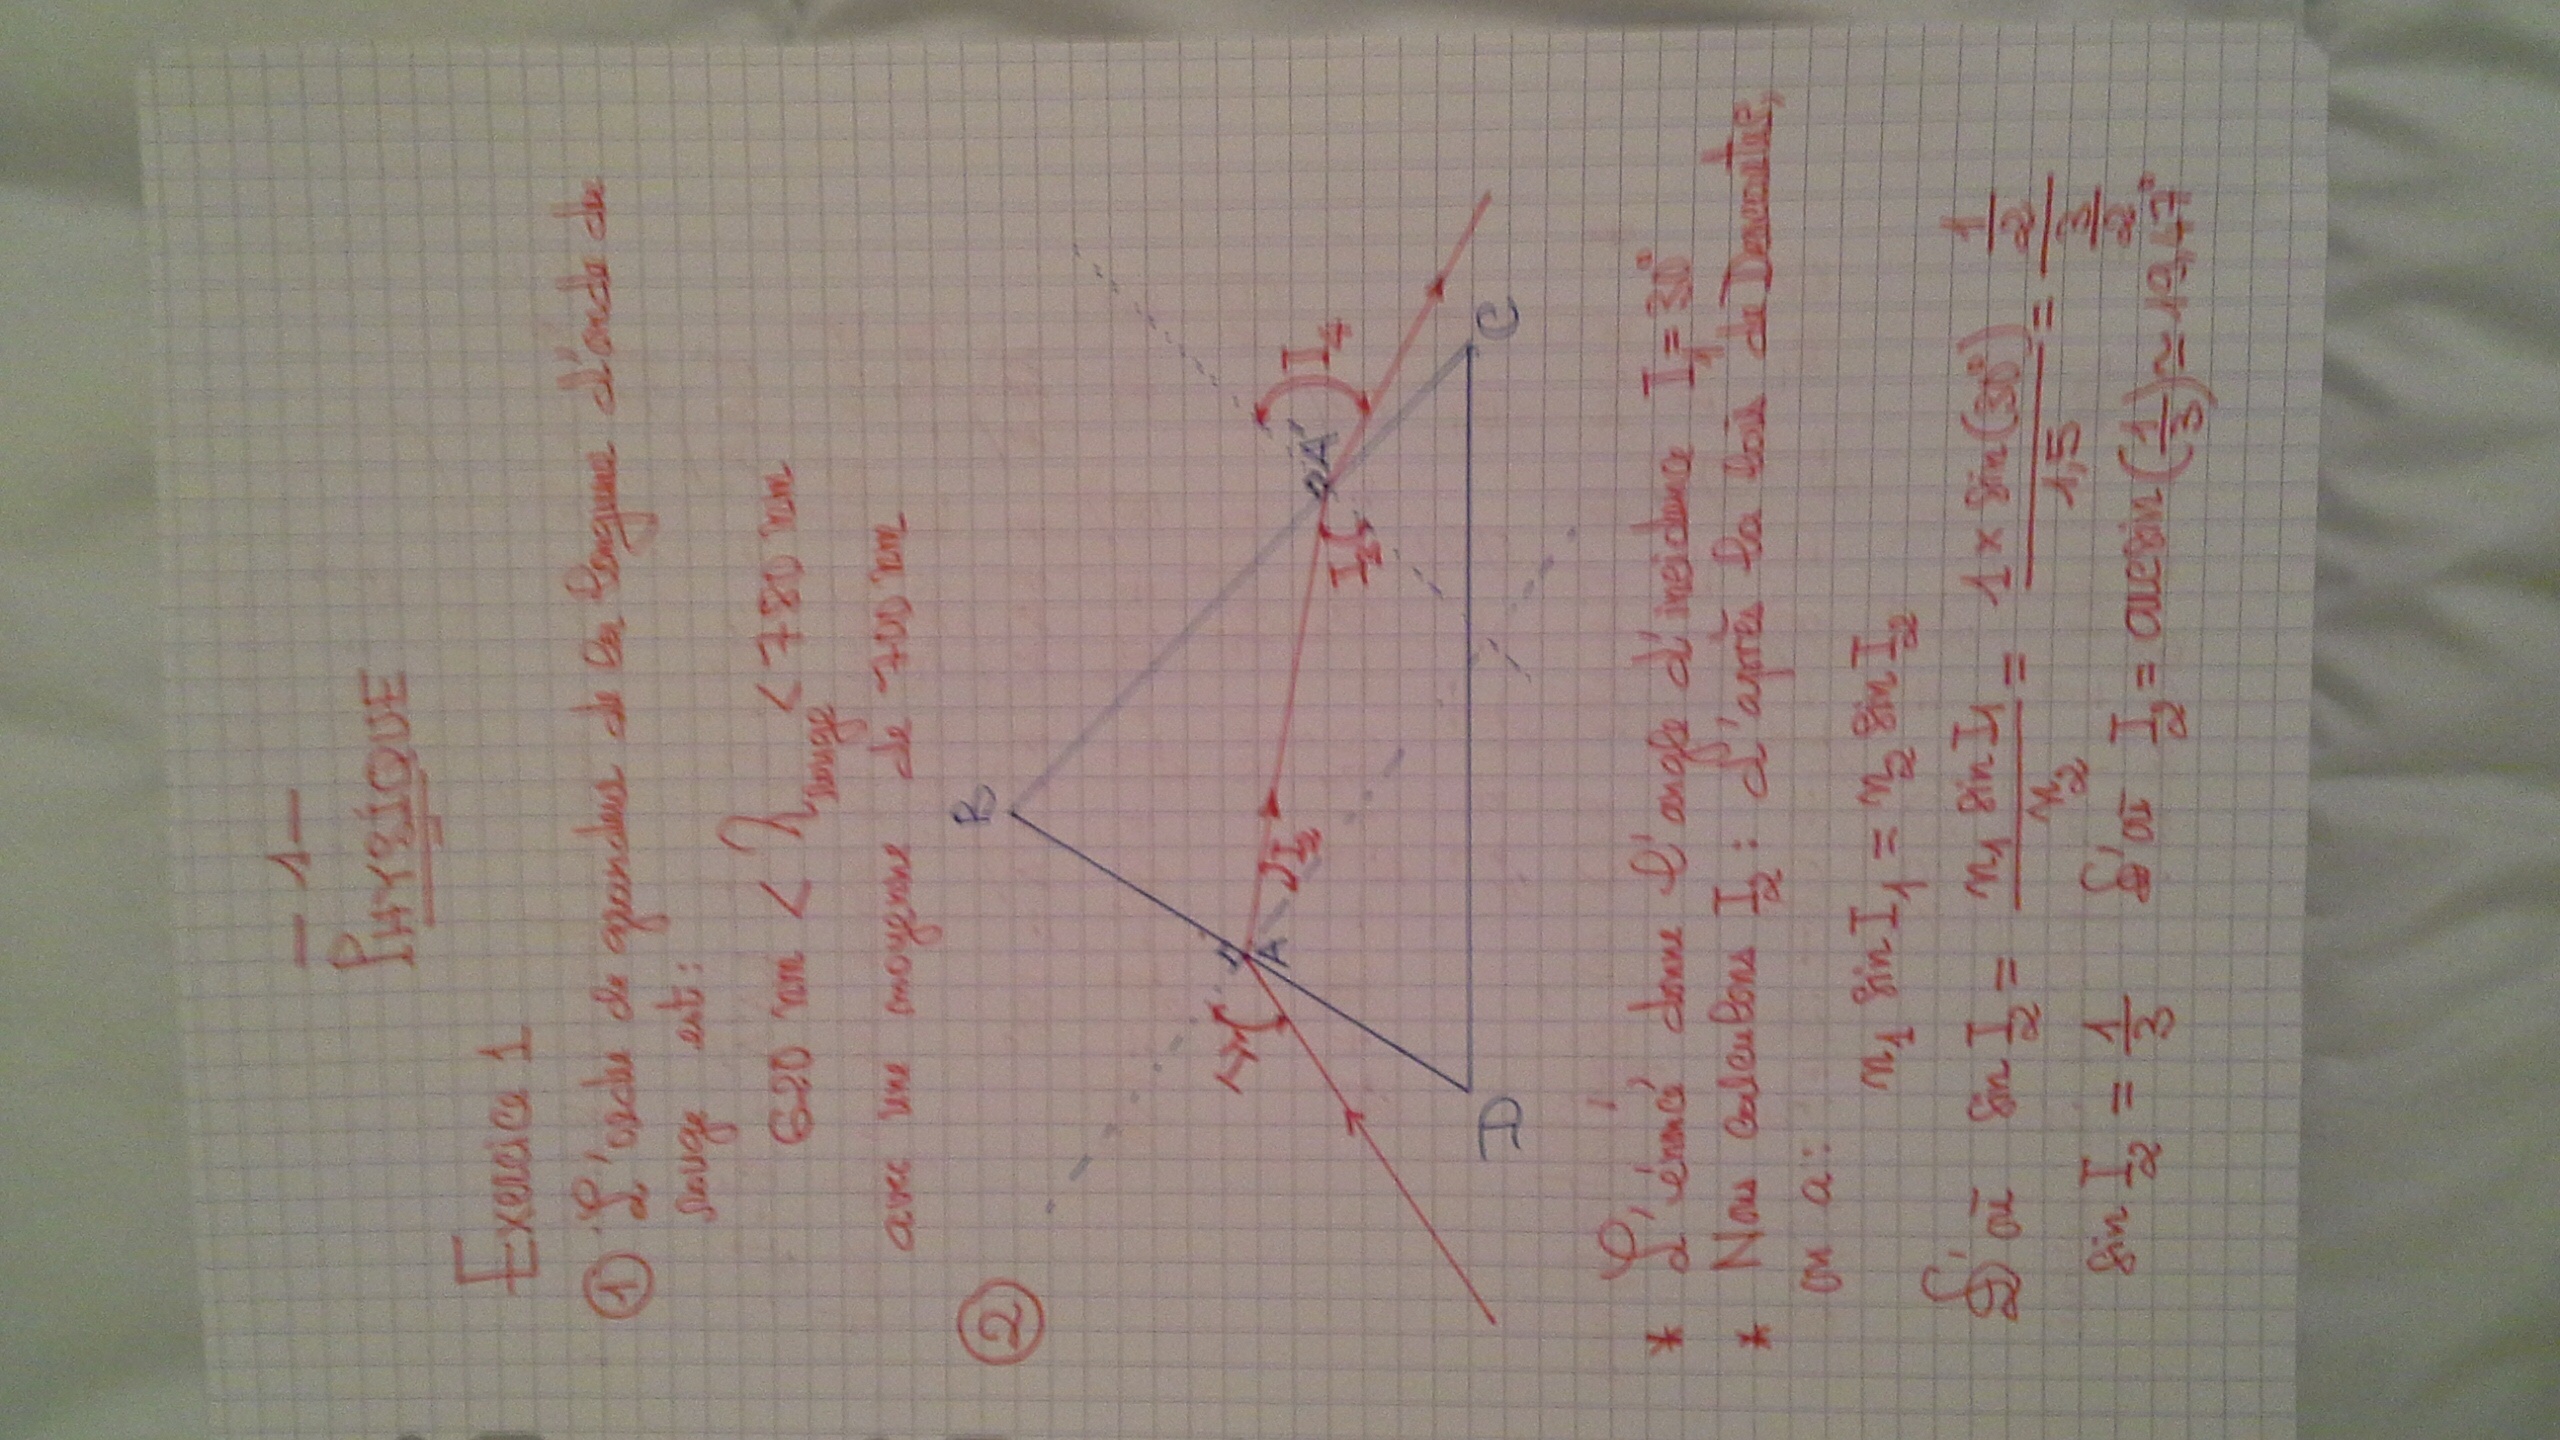 - 1 -
PHYSIQUE
Exercice 1
① L'ordre de grandeur de la longueur d'onde de
rouge est:
620 nm < λ rouge < 780 nm
avec une moyenne de 700 nm
②
B
I₁
A
I₂
I₃
A'
I₄
D
C
* L'énoncé donne l'angle d'incidence I₁ = 30°
* Nous calculons I₂ : d'après la loi de Descartes,
on a:
n₁ sin I₁ = n₂ sin I₂
D'où sin I₂ = n₁ sin I₁ / n₂ = 1 × sin(30°) / 1,5 = (1/2) / (3/2)
sin I₂ = 1/3 D'où I₂ = arcsin(1/3) ≃ 19,47°